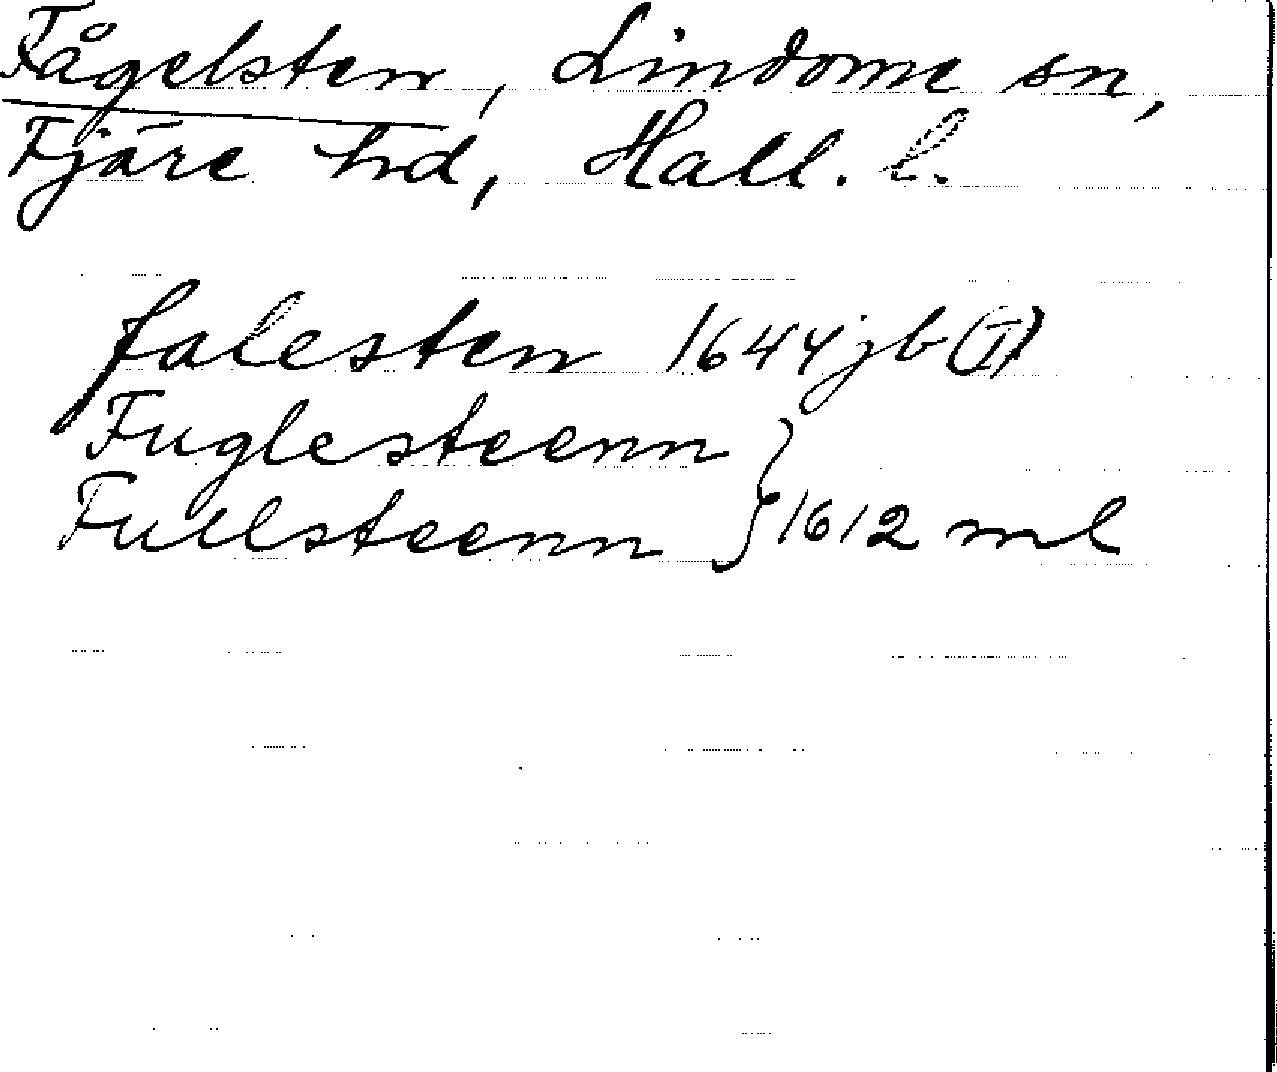 Fågelsten, Lindome sn,
Fjäre hd, Hall. l.
falesten 1644 jb (I)
Fuglesteenn
Fullsteenn } 1612 ml